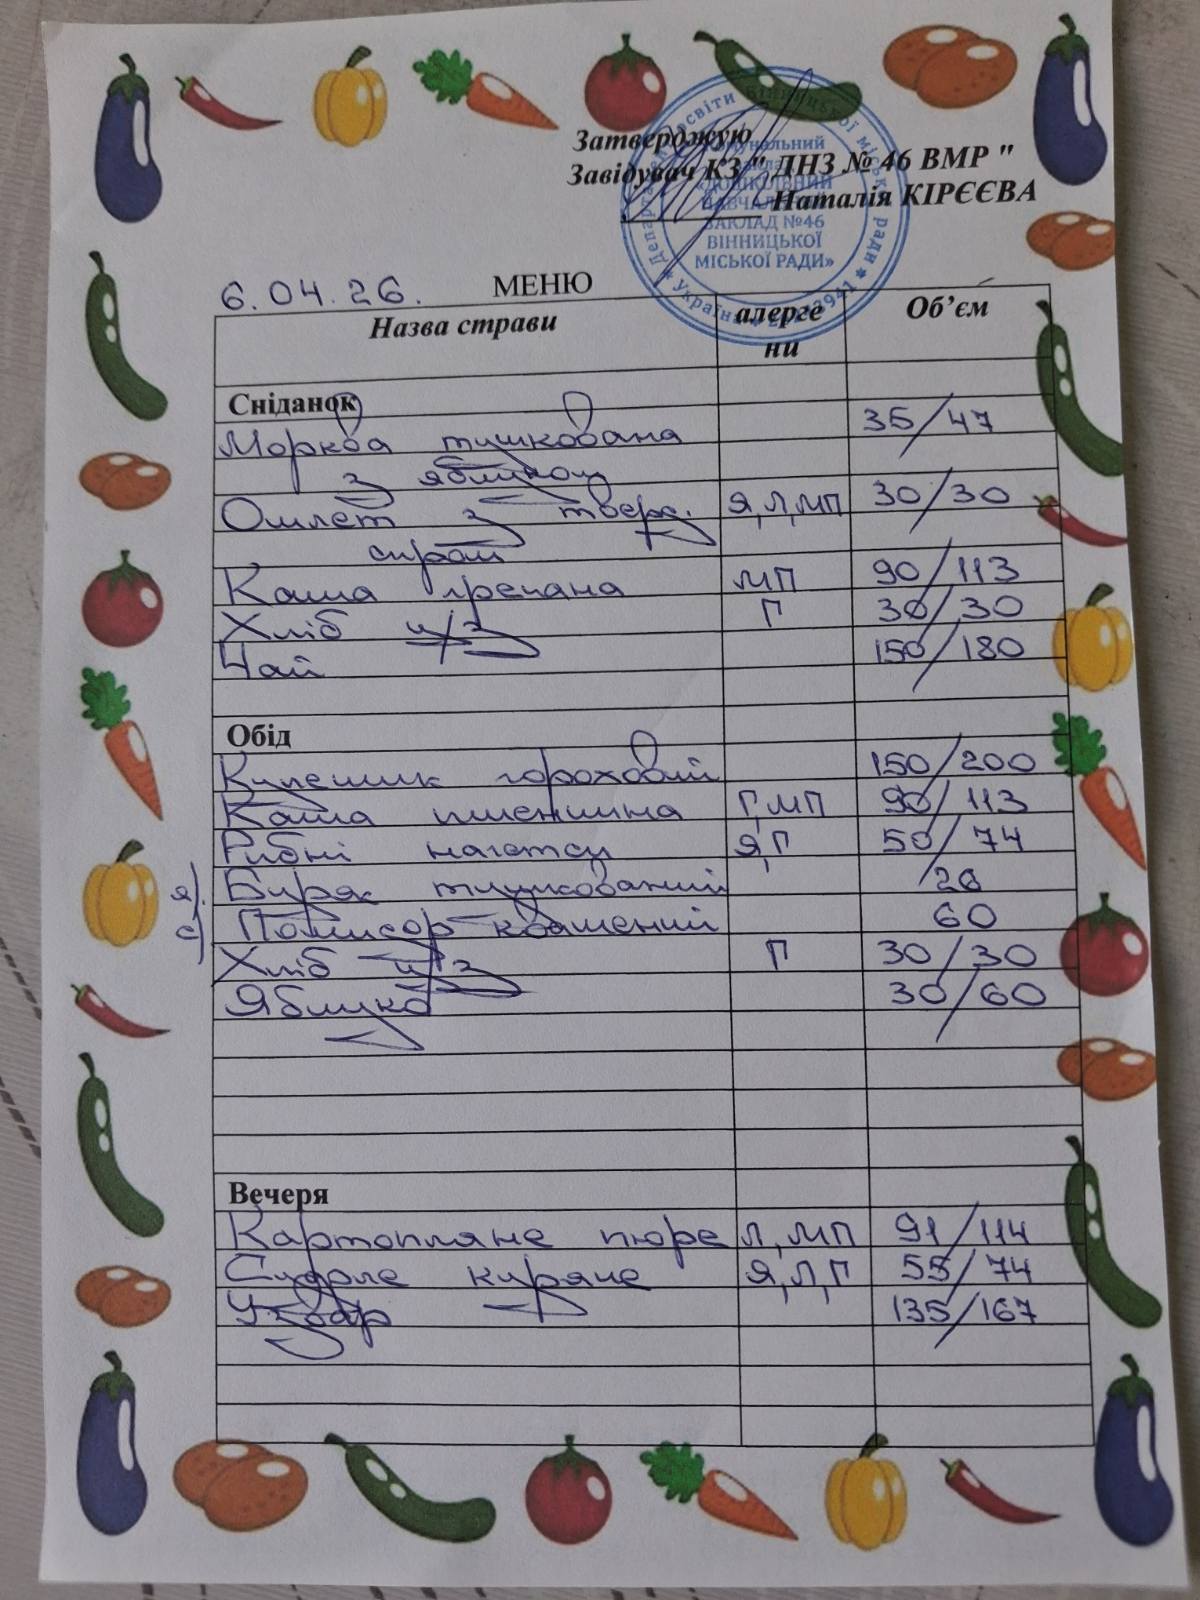 Затверджую
Завідувач КЗ " ДНЗ № 46 ВМР "
Наталія КІРЄЄВА
Департамент освіти Вінницької міської ради * Україна *
«ДОШКІЛЬНИЙ
НАВЧАЛЬНИЙ
ЗАКЛАД №46
ВІННИЦЬКОЇ
МІСЬКОЇ РАДИ»
6.04.26. МЕНЮ
Назва страви алерге Об’єм
ни
Сніданок
Морква тушкована 35/47
з яблуком
Омлет з тверд. Я,Л,МП 30/30
сиром
Каша гречана МП 90/113
Хліб ц/з Г 30/30
Чай 150/180
Обід
Кулешик гороховий 150/200
Каша пшенична Г,МП 90/113
Рибні нагетси Я,Г 50/74
я). Буряк тушкований /26
с) Помідор квашений 60
Хліб ц/з Г 30/30
Яблуко 30/60
Вечеря
Картопляне пюре Л,МП 91/114
Суфле куряче Я,Л,Г 55/74
Узвар 135/167